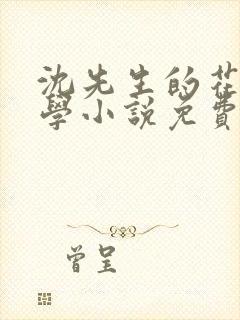 沈先生的
學小說免費
曾呈